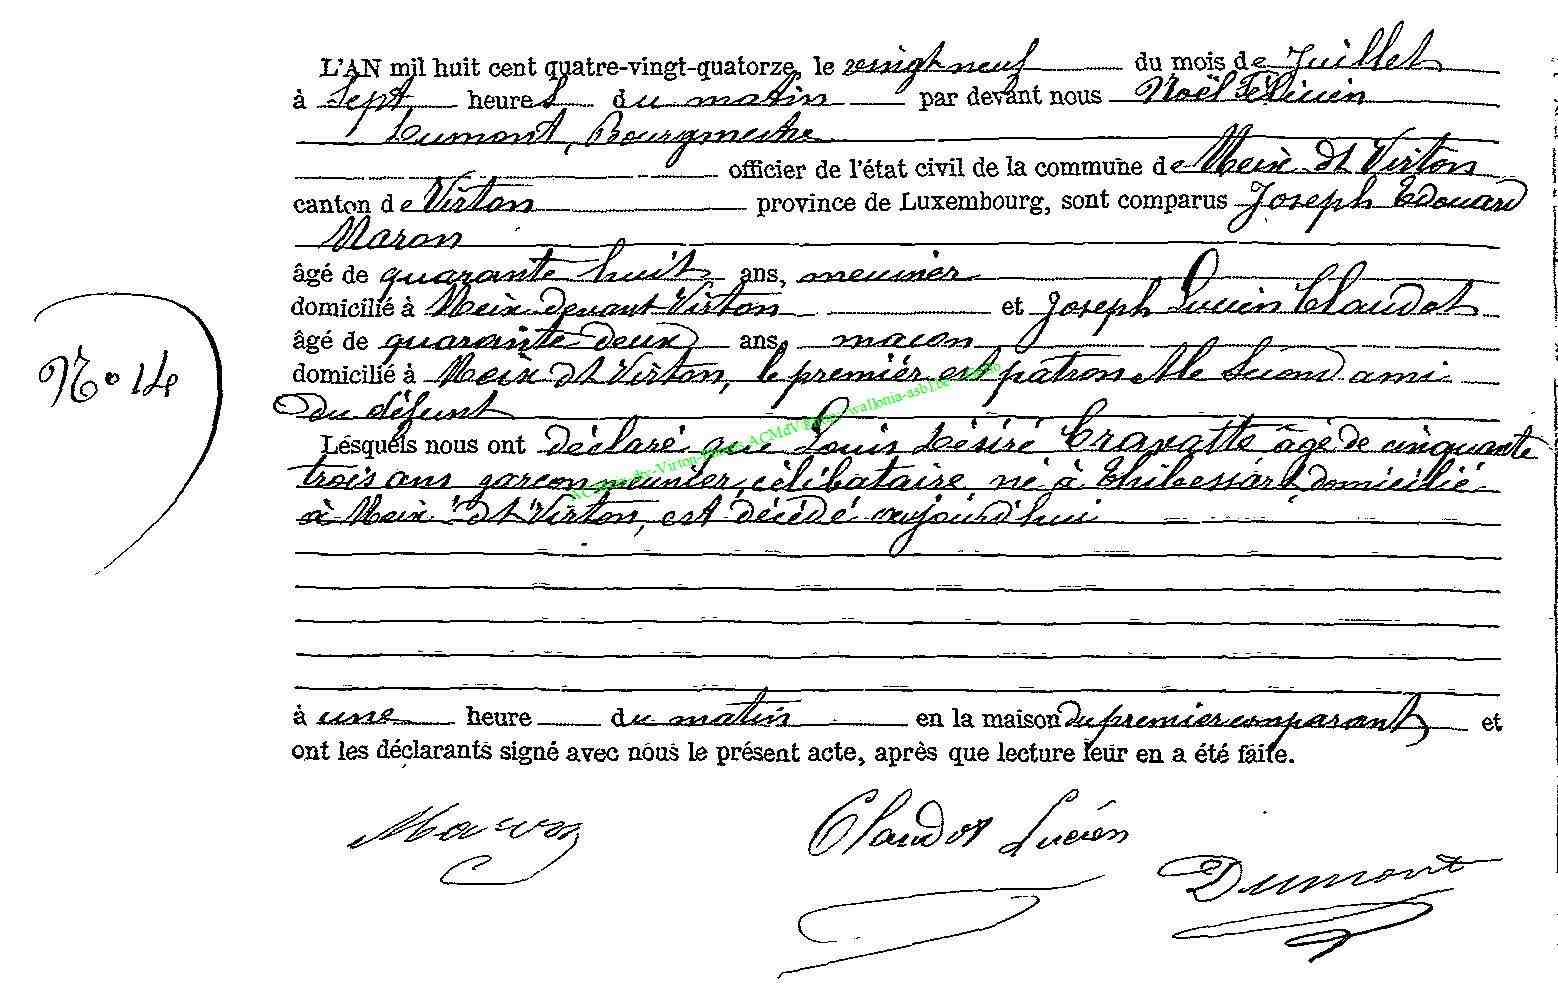 L'AN mil huit cent quatre-vingt-quatorze, le vingt neuf du mois de Juillet
à Sept heures du matin par devant nous Noël Félicien
Dumont, Bourgmestre
officier de l'état civil de la commune de Meix dt Virton
canton de Virton province de Luxembourg, sont comparus Joseph Edouard
Maron
âgé de quarante huit ans, meunier
domicilié à Meix devant Virton et Joseph Lucien Claudot
N° 14
âgé de quarante deux ans maçon
domicilié à Meix dt Virton, le premier est patron et le second ami
du défunt
Lesquels nous ont déclaré que Louis Désiré Cravatte âgé de cinquante
trois ans garçon meunier, célibataire né à Thibessart, domicilié
à Meix dt Virton, est décédé aujourd'hui
à une heure du matin en la maison du premier comparant et
ont les déclarants signé avec nous le présent acte, après que lecture leur en a été faite.
Maron Claudot Lucien
Dumont